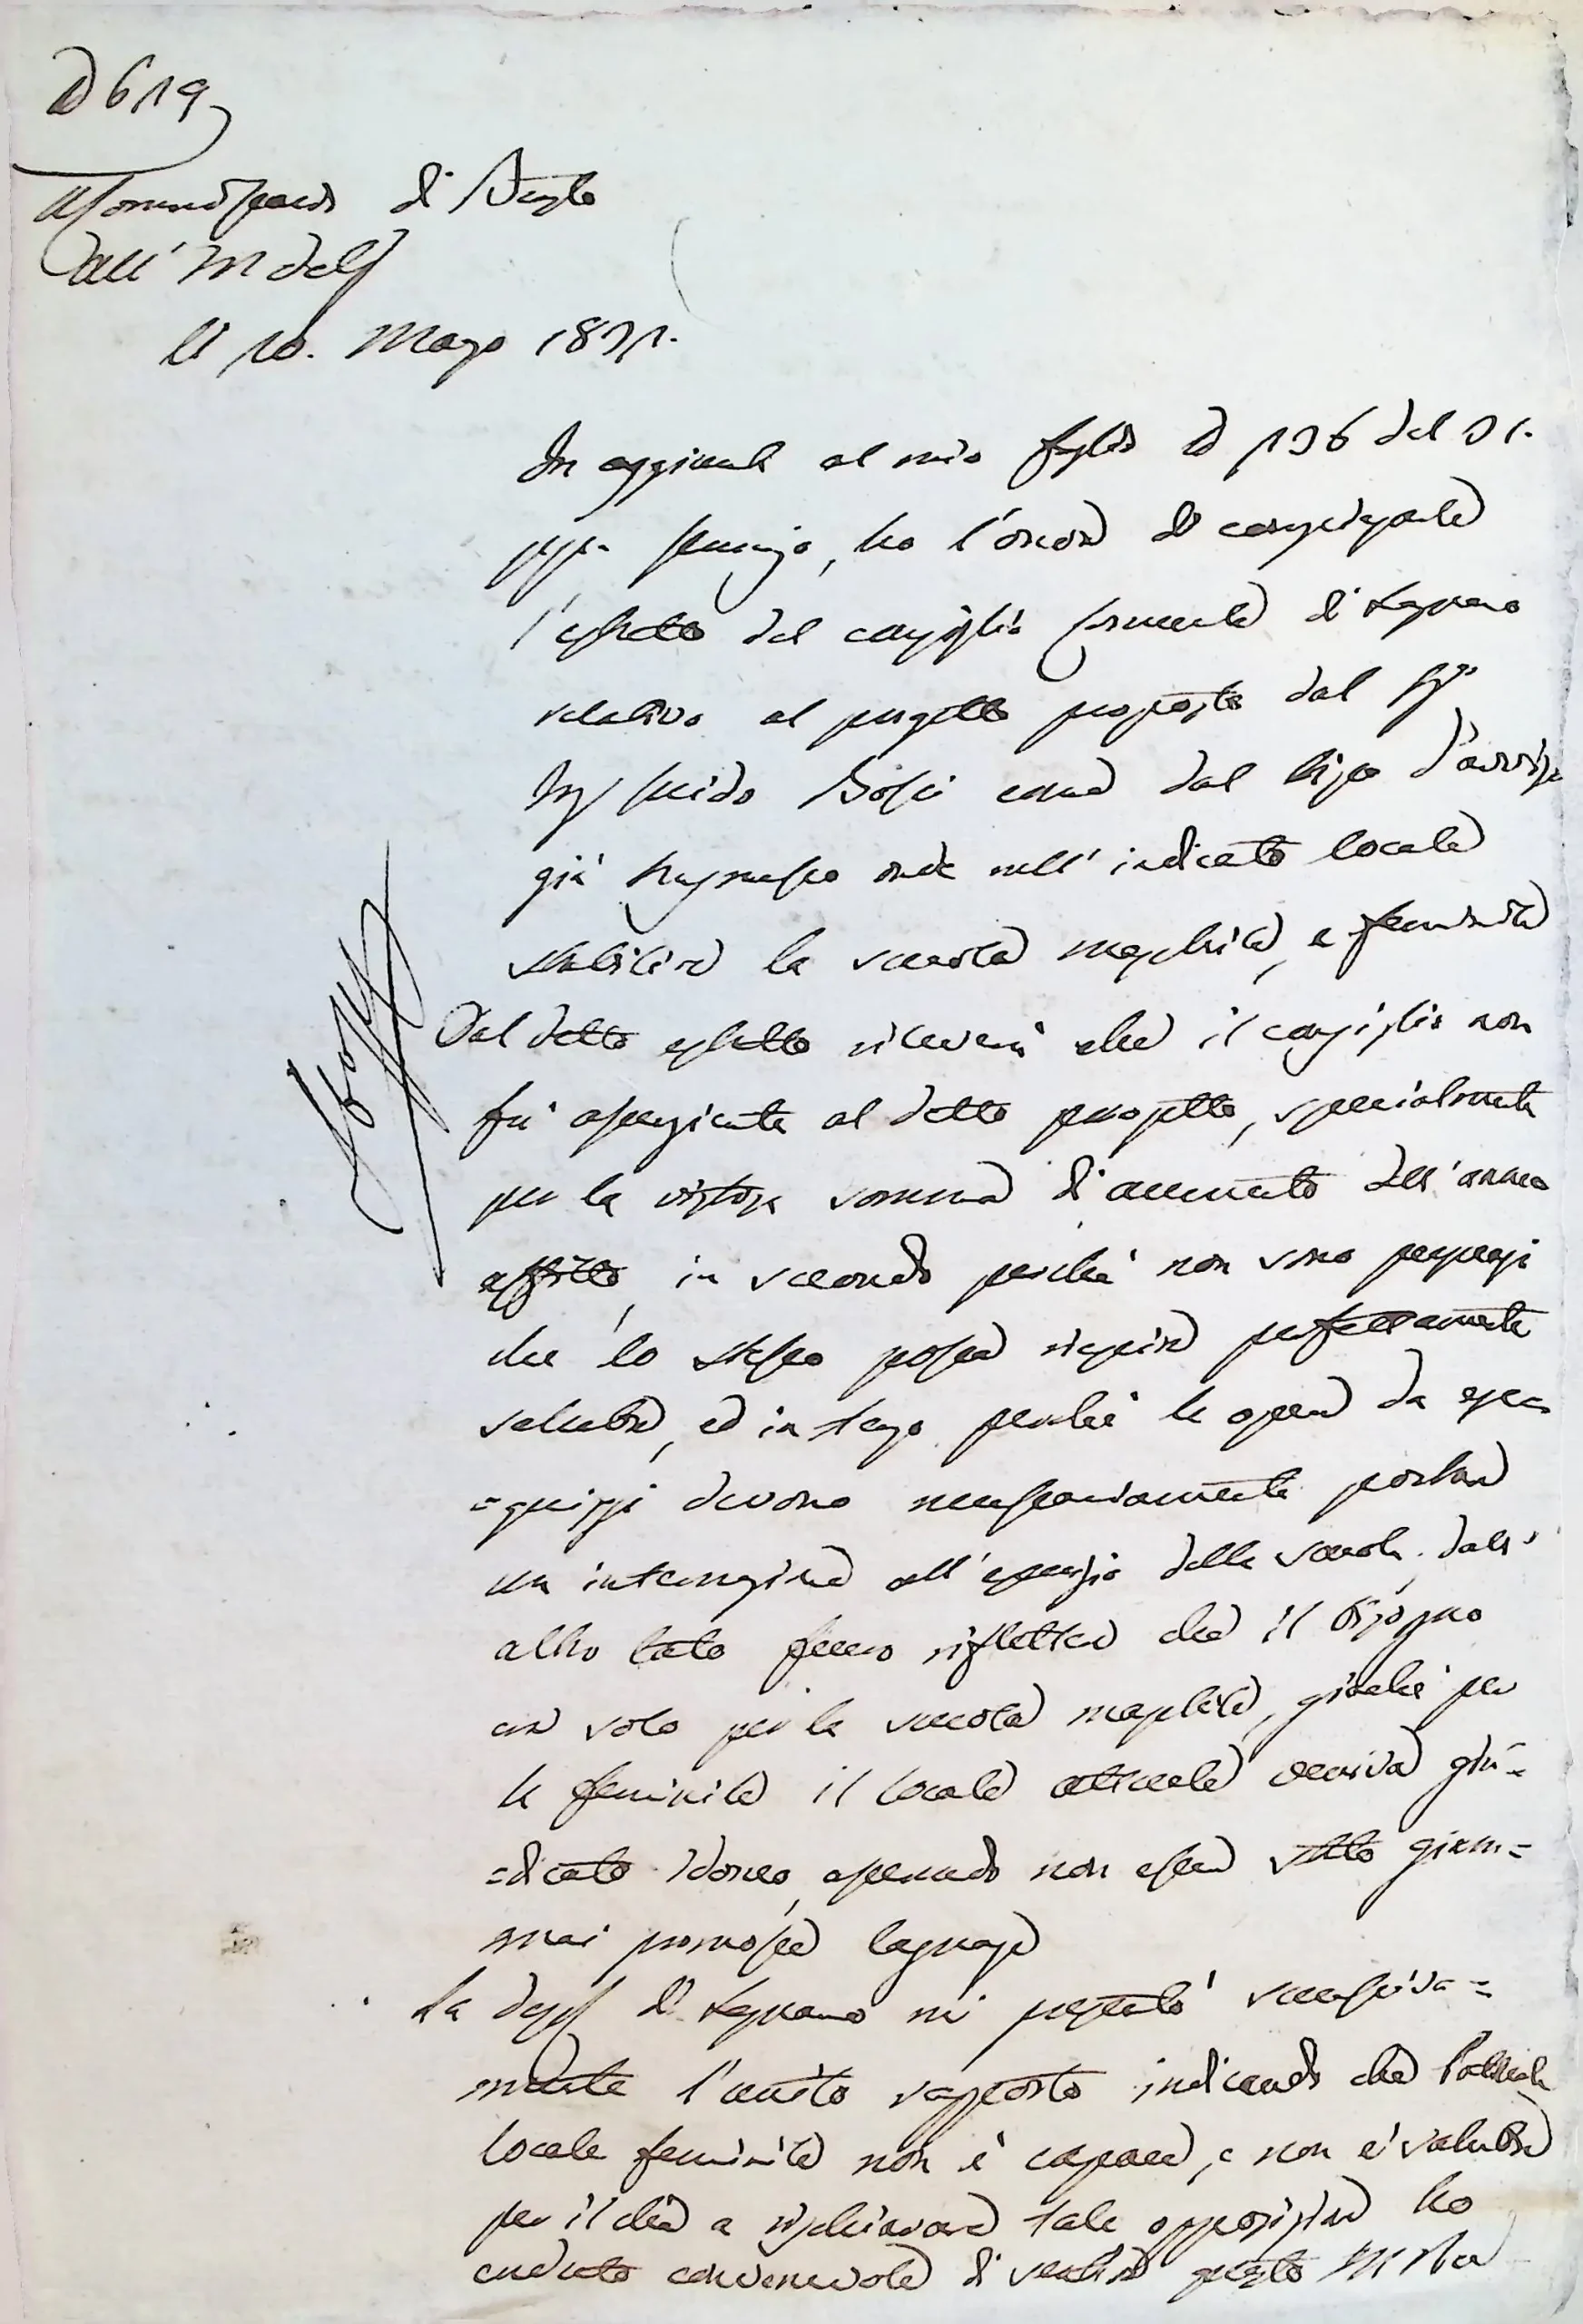 N 619
Commissario di Busto
All' I R Del
li 10. Marzo 1831.
In aggiunta al mio foglio N 136 del 31.
pp. Gennajo, ho l'onore di compiegarle
l'estratto del consiglio Comunale di Legnano
relativo al progetto proposto dal Sig.r
Ing Guido Bossi come dal tipo d'avviso
già trasmesso onde nell' indicato locale
stabilire la scuola maschile, e feminile
Dal detto estratto rileverà che il consiglio non
fù assenziente al detto progetto, specialmente
per la vistosa somma d'aumento dell'annuo
affitto, in secondo perchè non sono persuasi
che lo stesso possa riescire perfettamente
salubre, ed in terzo perchè le opere da ese=
=guirsi devono necessariamente portare
un interruzione all'esercizio delle scuole. Dall'
altro lato fecero riflettere che il bisogno
era solo per la scuola maschile, giacchè per
la feminile il locale attuale veniva giu=
=dicato idoneo, asserendo non essere stato giam=
mai promosse lagnanze
La Dep di Legnano mi presentò successiva=
mente l'unito rapporto indicando che l'attuale
locale feminile non è capace, e non è salubre
per il che a rischiarare tale opposizione ho
creduto convenevole di sentire questo